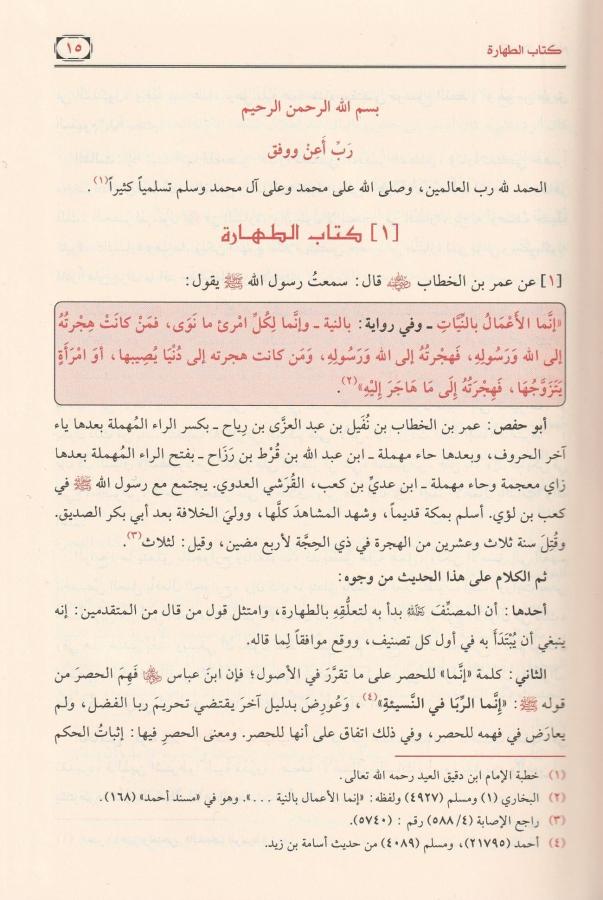 كتاب الطهارة
١٥
بسم الله الرحمن الرحيم
رَبِّ أَعِنْ ووفق
الحمد لله رب العالمين، وصلى الله على محمد وعلى آل محمد وسلم تسلمياً كثيراً(١).
[١] كتاب الطهارة
[١] عن عمر بن الخطاب رضي الله عنه قال: سمعتُ رسول الله ﷺ يقول:
«إِنَّما الأَعْمَالُ بالنِّيَّاتِ ـ وفي رواية: بالنية ـ وإنما لِكُلِّ امْرئ ما نَوَى، فمَنْ كانَتْ هِجْرتُهُ
إلى الله وَرَسُولِهِ، فَهِجْرتُهُ إلى الله وَرَسُولِهِ، وَمَن كانت هجرته إلى دُنْيَا يُصِيبها، أوْ امْرَأَةٍ
يَتَزَوَّجُهَا، فَهِجْرَتُهُ إِلَى مَا هَاجَرَ إِلَيْهِ»(٢).
أبو حفص: عمر بن الخطاب بن نُفَيل بن عبد العزَّى بن رِياح ـ بكسر الراء المهملة بعدها ياء
آخر الحروف، وبعدها حاء مهملة ـ ابن عبد الله بن قُرْط بن رَزَاح ـ بفتح الراء المهملة بعدها
زاي معجمة وحاء مهملة ـ ابن عديِّ بن كعب، القُرَشي العدوي. يجتمع مع رسول الله ﷺ في
كعب بن لؤي. أسلم بمكة قديماً، وشهد المشاهدَ كلَّها، ووليَ الخلافة بعد أبي بكر الصديق.
وقُتِلَ سنة ثلاث وعشرين من الهجرة في ذي الحِجَّة لأربع مضين، وقيل: لثلاث(٣).
ثم الكلام على هذا الحديث من وجوه:
أحدها: أن المصنِّفَ رحمه الله بدأ به لتعلُّقِهِ بالطهارة، وامتثل قول من قال من المتقدمين: إنه
ينبغي أن يُبْتَدَأَ به في أول كل تصنيف، ووقع موافقاً لِما قاله.
الثاني: كلمة «إنَّما» للحصر على ما تقرَّرَ في الأصول؛ فإن ابنَ عباس رضي الله عنه فَهِمَ الحصرَ من
قوله ﷺ: «إِنَّما الرِّبَا في النَّسيئةِ»(٤)، وَعُورِضَ بدليل آخرَ يقتضي تحريمَ ربا الفضل، ولم
يعارَض في فهمه للحصر، وفي ذلك اتفاق على أنها للحصر. ومعنى الحصرِ فيها: إثباتُ الحكم
(١) خطبة الإمام ابن دقيق العيد رحمه الله تعالى.
(٢) البخاري (١) ومسلم (٤٩٢٧) ولفظه: «إنما الأعمال بالنية ...». وهو في «مسند أحمد» (١٦٨).
(٣) راجع الإصابة (٥٨٨/٤) رقم: (٥٧٤٠).
(٤) أحمد (٢١٧٩٥)، ومسلم (٤٠٨٩) من حديث أسامة بن زيد.